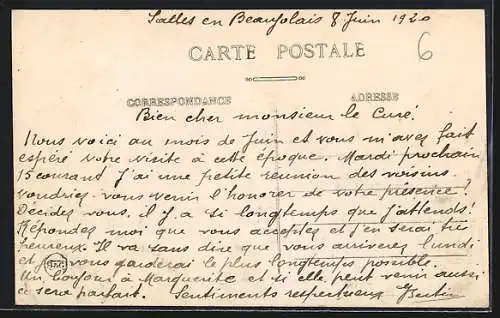 Salles en Beaujolais 8 Juin 1920
6
CARTE POSTALE
CORRESPONDANCE ADRESSE
Bien cher monsieur le Curé.
Nous voici au mois de Juin et vous m'avez fait
espéré votre visite à cette époque. Mardi prochain
15 courant J'ai une petite reunion des voisins.
voudriez vous venir l'honorer de votre présence!
Décidez vous, il y a si longtemps que j'attends!
Répondez moi que vous acceptez et j'en serai très
heureux. Il va sans dire que vous arriverez lundi
et vous garderai le plus longtemps possible.
Un bonjour à Marguerite et si elle peut venir aussi
ce sera parfait. Sentiments respectueux